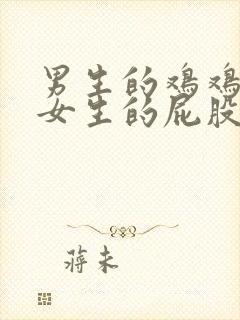 男生的鸡鸡
女生的屁股
蒋未